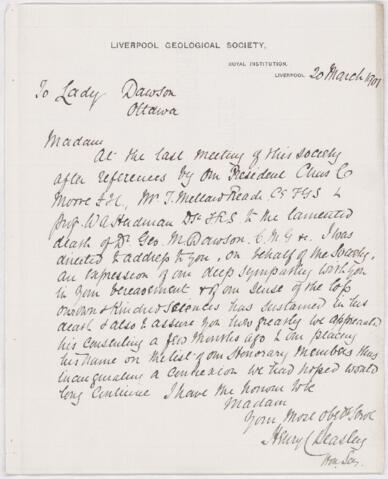 LIVERPOOL GEOLOGICAL SOCIETY,
ROYAL INSTITUTION,
LIVERPOOL 20 March 1901
To Lady Dawson
Ottawa
Madam
At the last meeting of this Society
after references by our President Chas C
Moore F.I.C., Mr T. Mellard Reade C.E. F.G.S. &
Prof. W A Herdman D.Sc F.R.S. to the lamented
death of Dr Geo. M. Dawson. C.M.G. &c. I was
directed to address to you, on behalf of the Society,
an expression of our deep sympathy with you
in your bereavement & of our sense of the loss
our own & Kindred Sciences has sustained in his
death & also to assure you how greatly we appreciated
his consenting a few months ago to our placing
his name on the list of our Honorary Members thus
inaugurating a connexion we had hoped would
long continue I have the honour to be
Madam
Your Most Obedt Servt
Henry C Beasley
Hon. Sec.